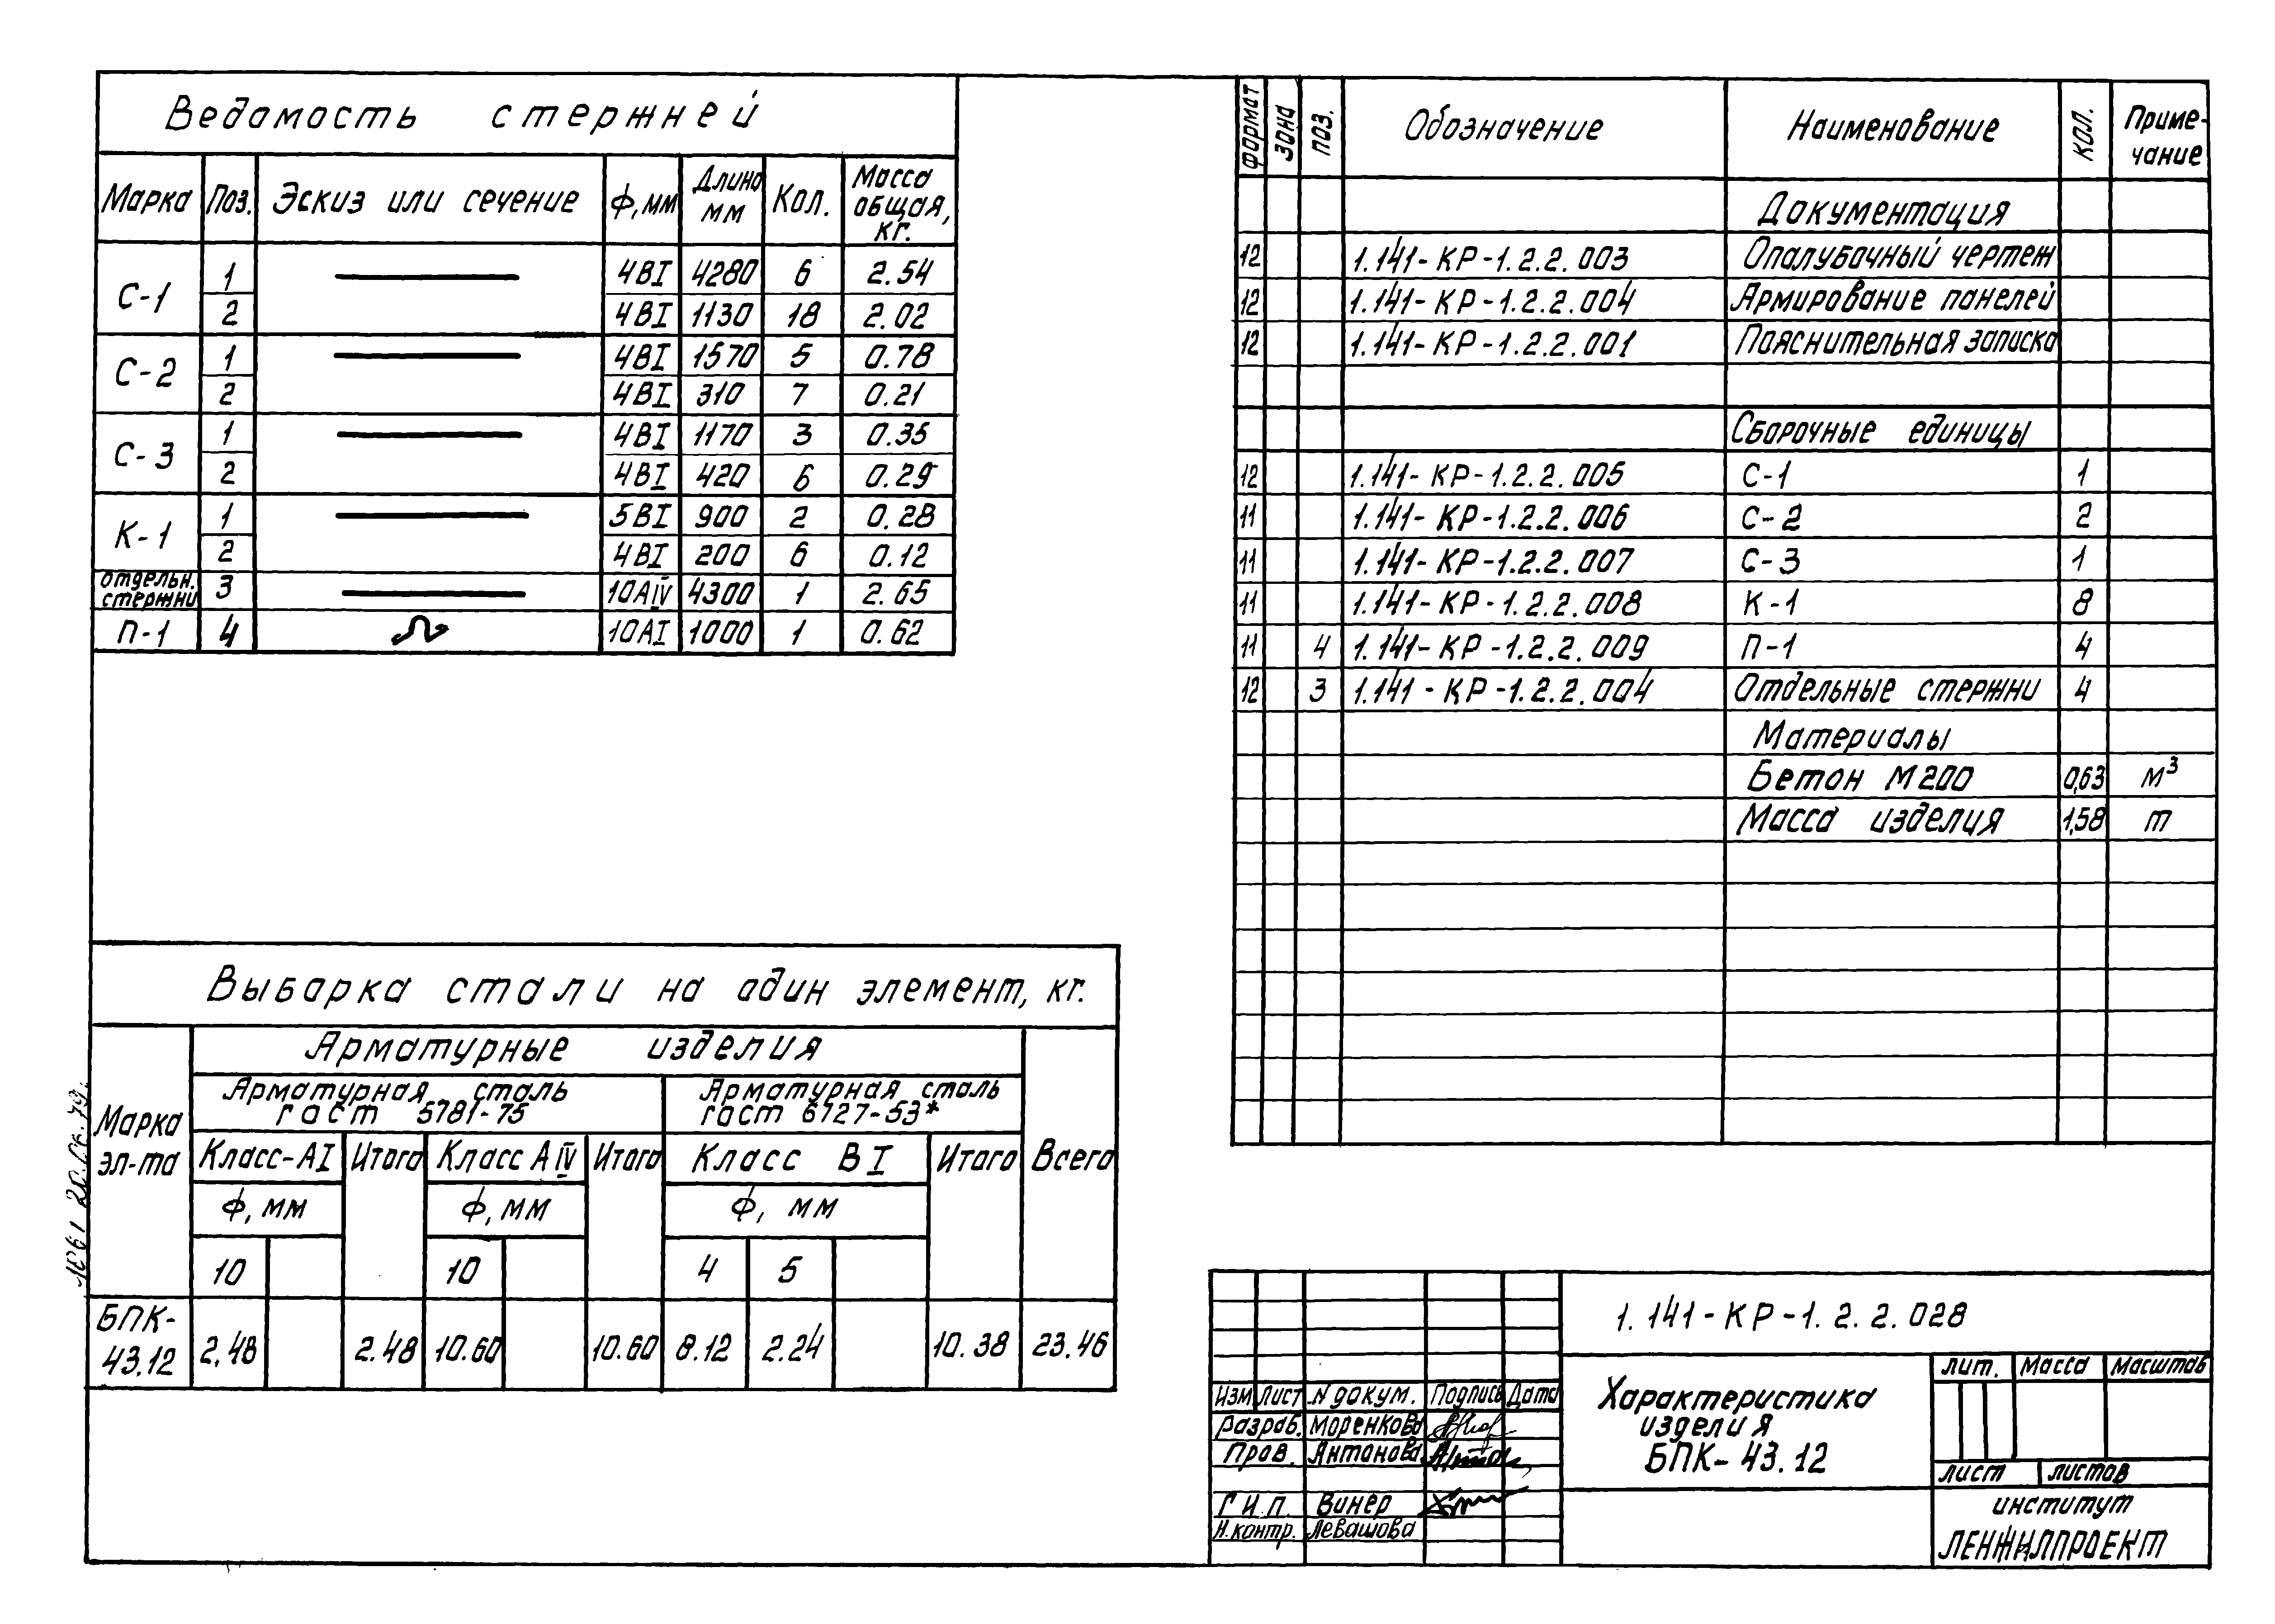 Ведомость стержней
Марка Поз. Эскиз или сечение ф,мм Длина мм Кол. Масса общая, кг.
С-1 1 4ВI 4280 6 2.54
2 4ВI 1130 18 2.02
С-2 1 4ВI 1570 5 0.78
2 4ВI 310 7 0.21
С-3 1 4ВI 1170 3 0.35
2 4ВI 420 6 0.29
К-1 1 5ВI 900 2 0.28
2 4ВI 200 6 0.12
отдельн. стержни 3 10АIV 4300 1 2.65
П-1 4 10АI 1000 1 0.62
Выборка стали на один элемент, кг.
Марка эл-та
Арматурные изделия
Всего
Арматурная сталь гост 5781-75
Арматурная сталь гост 6727-53*
Класс-АI Итого Класс АIV Итого Класс ВI Итого
ф, мм ф, мм ф, мм
10 10 4 5
БПК-43.12 2.48 2.48 10.60 10.60 8.12 2.24 10.38 23.46
формат зона поз. Обозначение Наименование кол. Приме-
чание
Документация
12 1.141-КР-1.2.2.003 Опалубочный чертеж
12 1.141-КР-1.2.2.004 Армирование панелей
12 1.141-КР-1.2.2.001 Пояснительная записка
Сборочные единицы
12 1.141-КР-1.2.2.005 С-1 1
11 1.141-КР-1.2.2.006 С-2 2
11 1.141-КР-1.2.2.007 С-3 1
11 1.141-КР-1.2.2.008 К-1 8
11 4 1.141-КР-1.2.2.009 П-1 4
12 3 1.141-КР-1.2.2.004 Отдельные стержни 4
Материалы
Бетон М200 0,63 м³
Масса изделия 1,58 т
1.141-КР-1.2.2.028
Изм Лист N докум. Подпись Дата
Разраб. Моренкова
Пров. Антонова
ГИП. Винер
Н.контр. Левашова
Характеристика
изделия
БПК-43.12
лит. Масса Масштаб
лист листов
институт
ЛЕНЖИЛПРОЕКТ